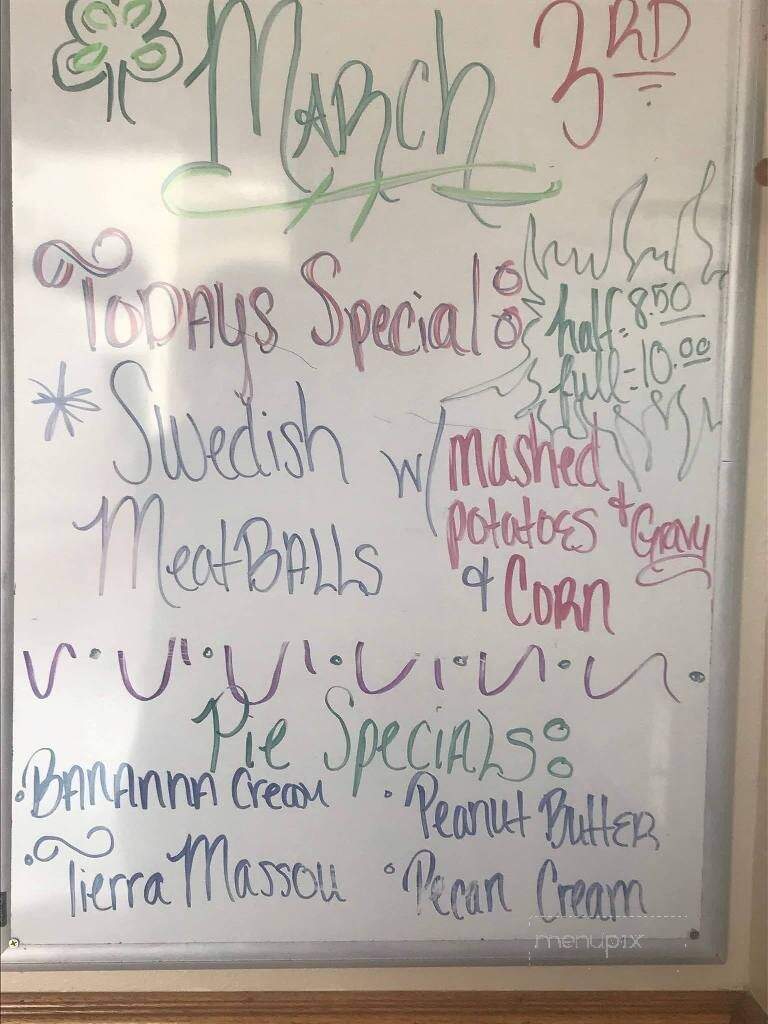 MARCH 3RD
TODAYS Special:
half: 8.50
full - 10.00
* Swedish MeatBALLS
w/ mashed potatoes & Gravy
& CORN
Pie SpeciALS:
• BANANNA Cream
• Peanut ButtER
• Tierra Massou
• Pecan Cream
menupix